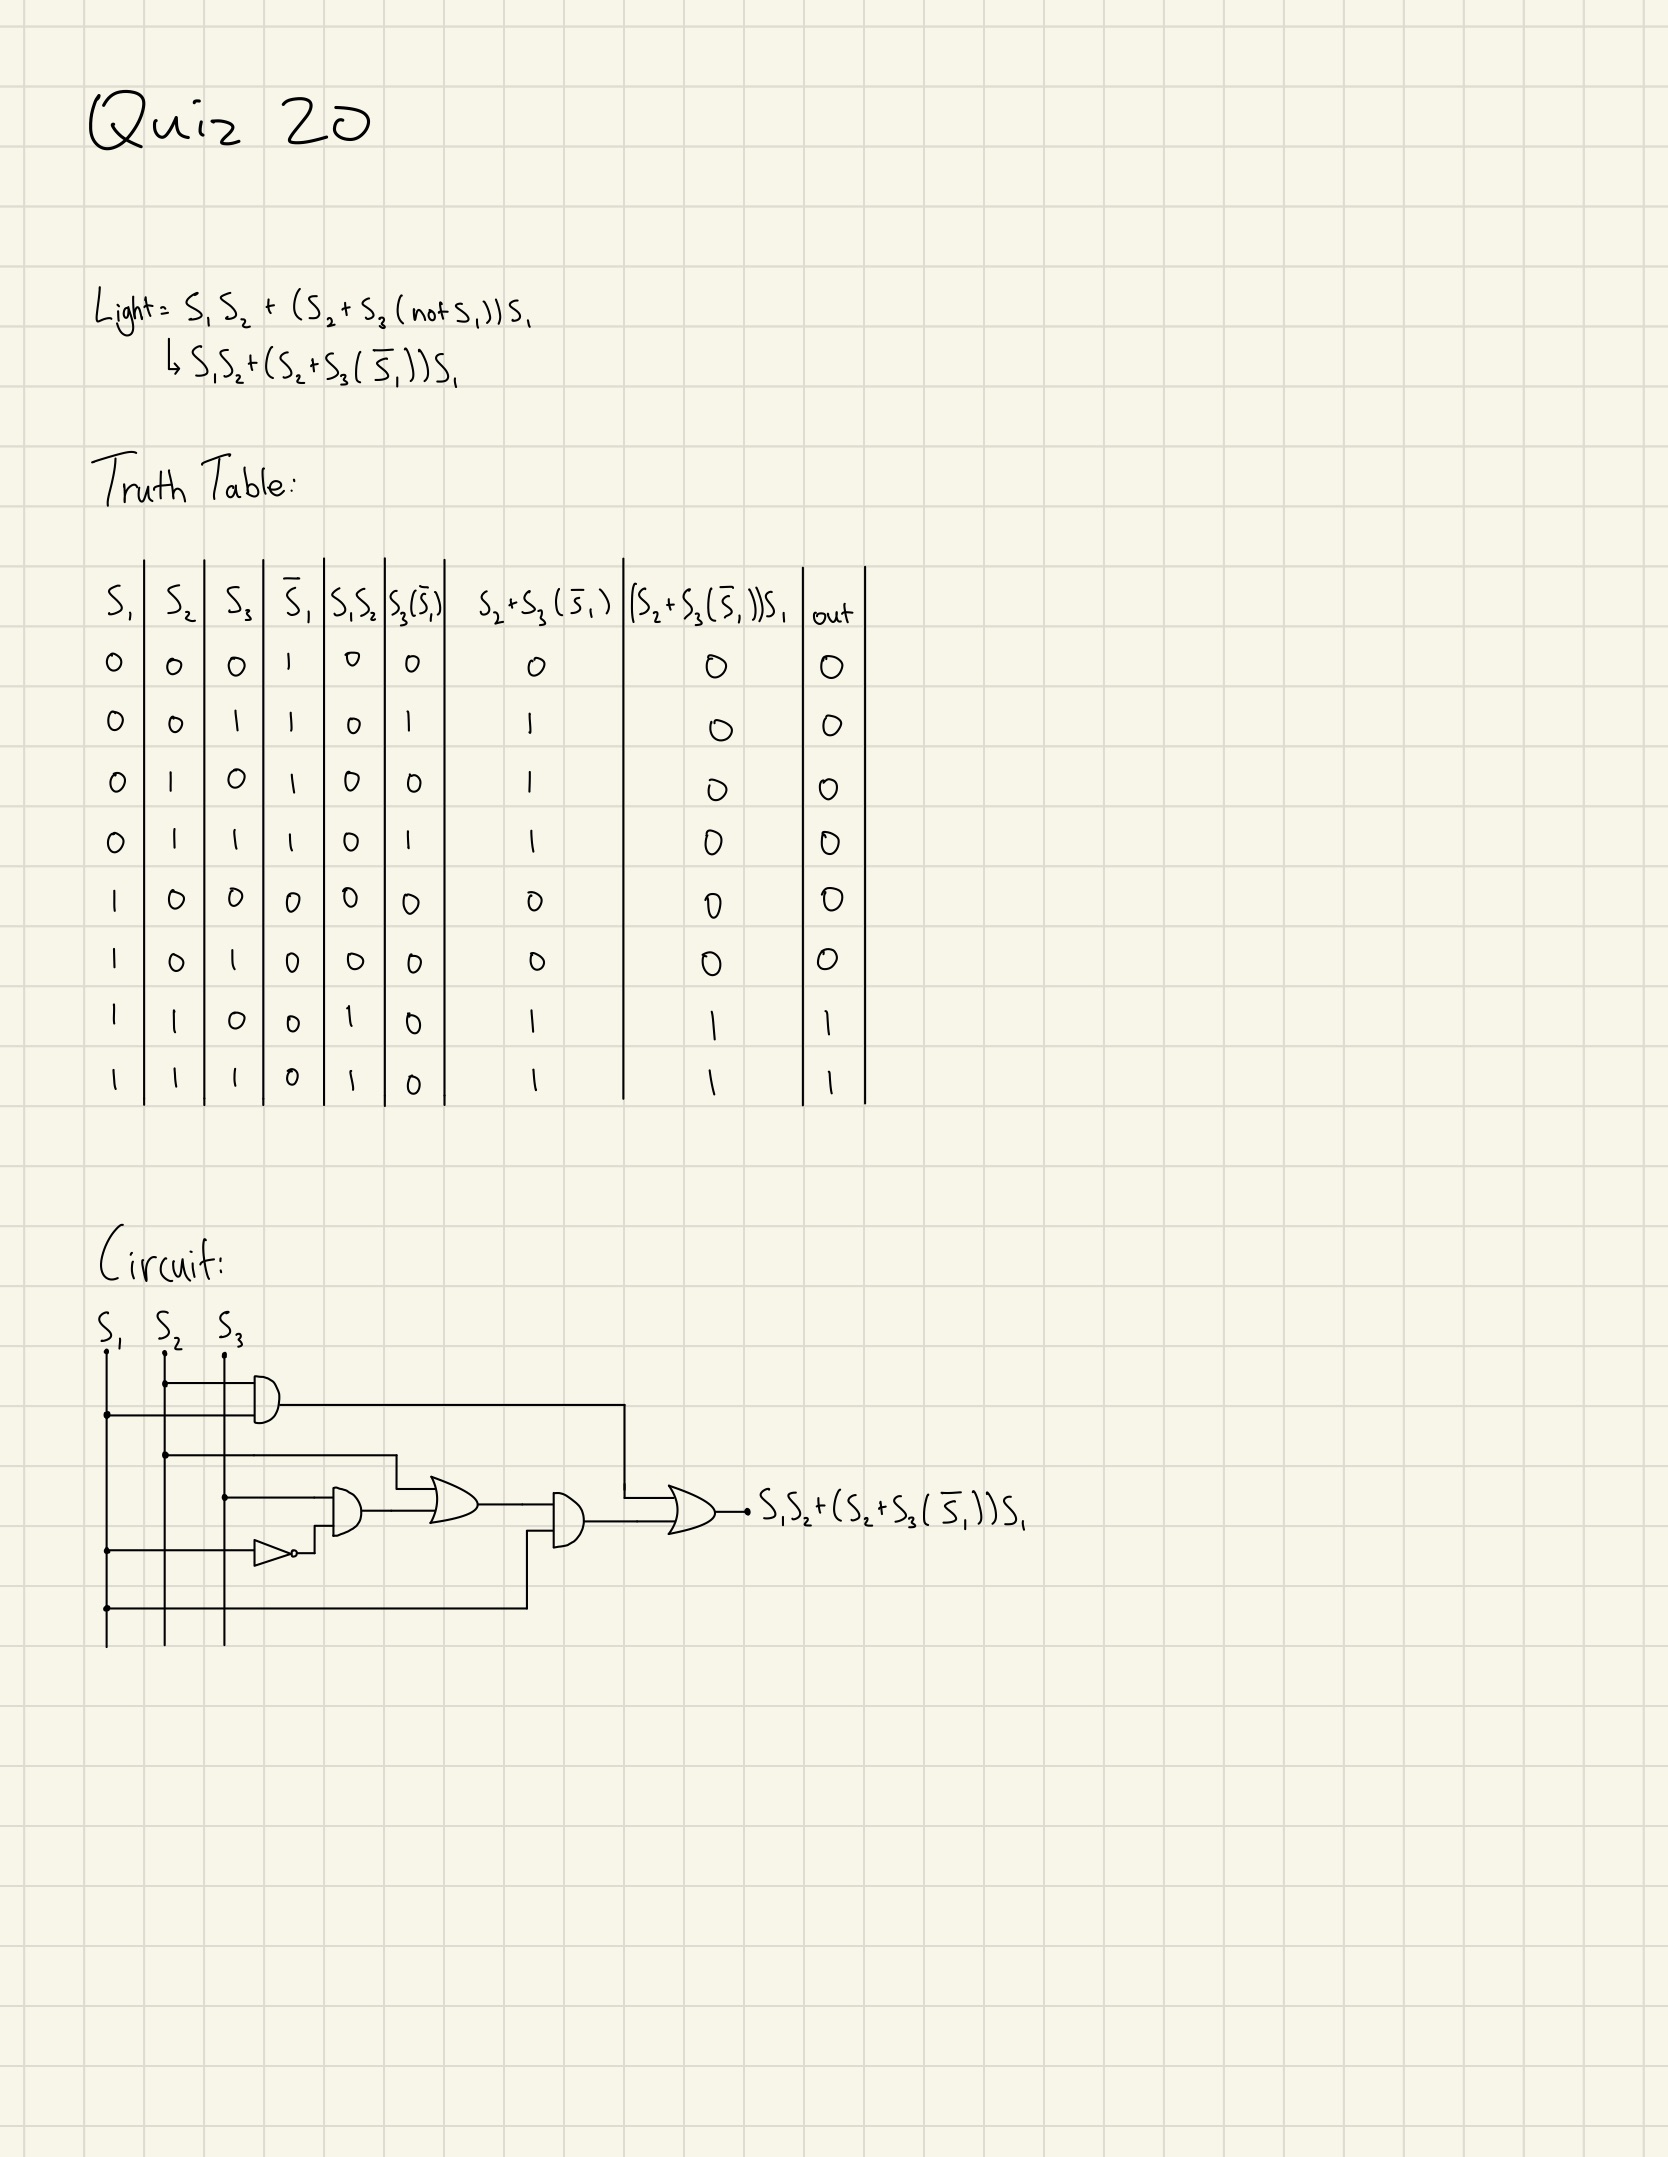 Quiz 20
Light = S₁S₂ + (S₂ + S₃(not S₁))S₁
↳ S₁S₂+(S₂+S₃(S̅₁))S₁
Truth Table:
S₁ S₂ S₃ S̅₁ S₁S₂ S₃(S̅₁) S₂+S₃(S̅₁) (S₂+S₃(S̅₁))S₁ out
0 0 0 1 0 0 0 0 0
0 0 1 1 0 1 1 0 0
0 1 0 1 0 0 1 0 0
0 1 1 1 0 1 1 0 0
1 0 0 0 0 0 0 0 0
1 0 1 0 0 0 0 0 0
1 1 0 0 1 0 1 1 1
1 1 1 0 1 0 1 1 1
Circuit:
S₁ S₂ S₃
S₁S₂+(S₂+S₃(S̅₁))S₁